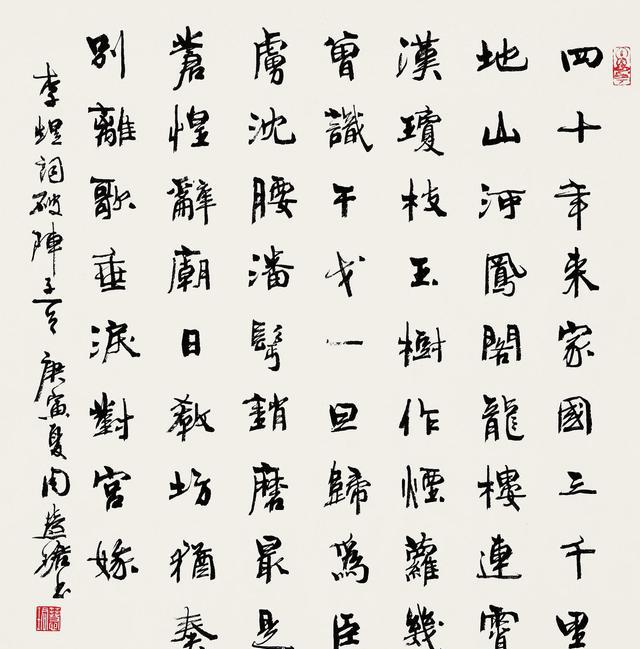 四十年来家國三千里
地山河鳳閣龍樓連霄
漢瓊枝玉樹作煙蘿幾
曾識干戈一旦歸為臣
虜沈腰潘鬢銷磨最是
蒼惶辭廟日教坊猶奏
別離歌垂淚對宮娥
李煜詞破陣子一首 庚寅夏 周慧珺书